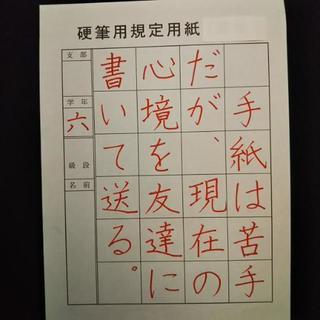 硬筆用規定用紙
手紙は苦手
だが、現在の
心境を友達に
書いて送る。
支部
学年
六
級段
名前